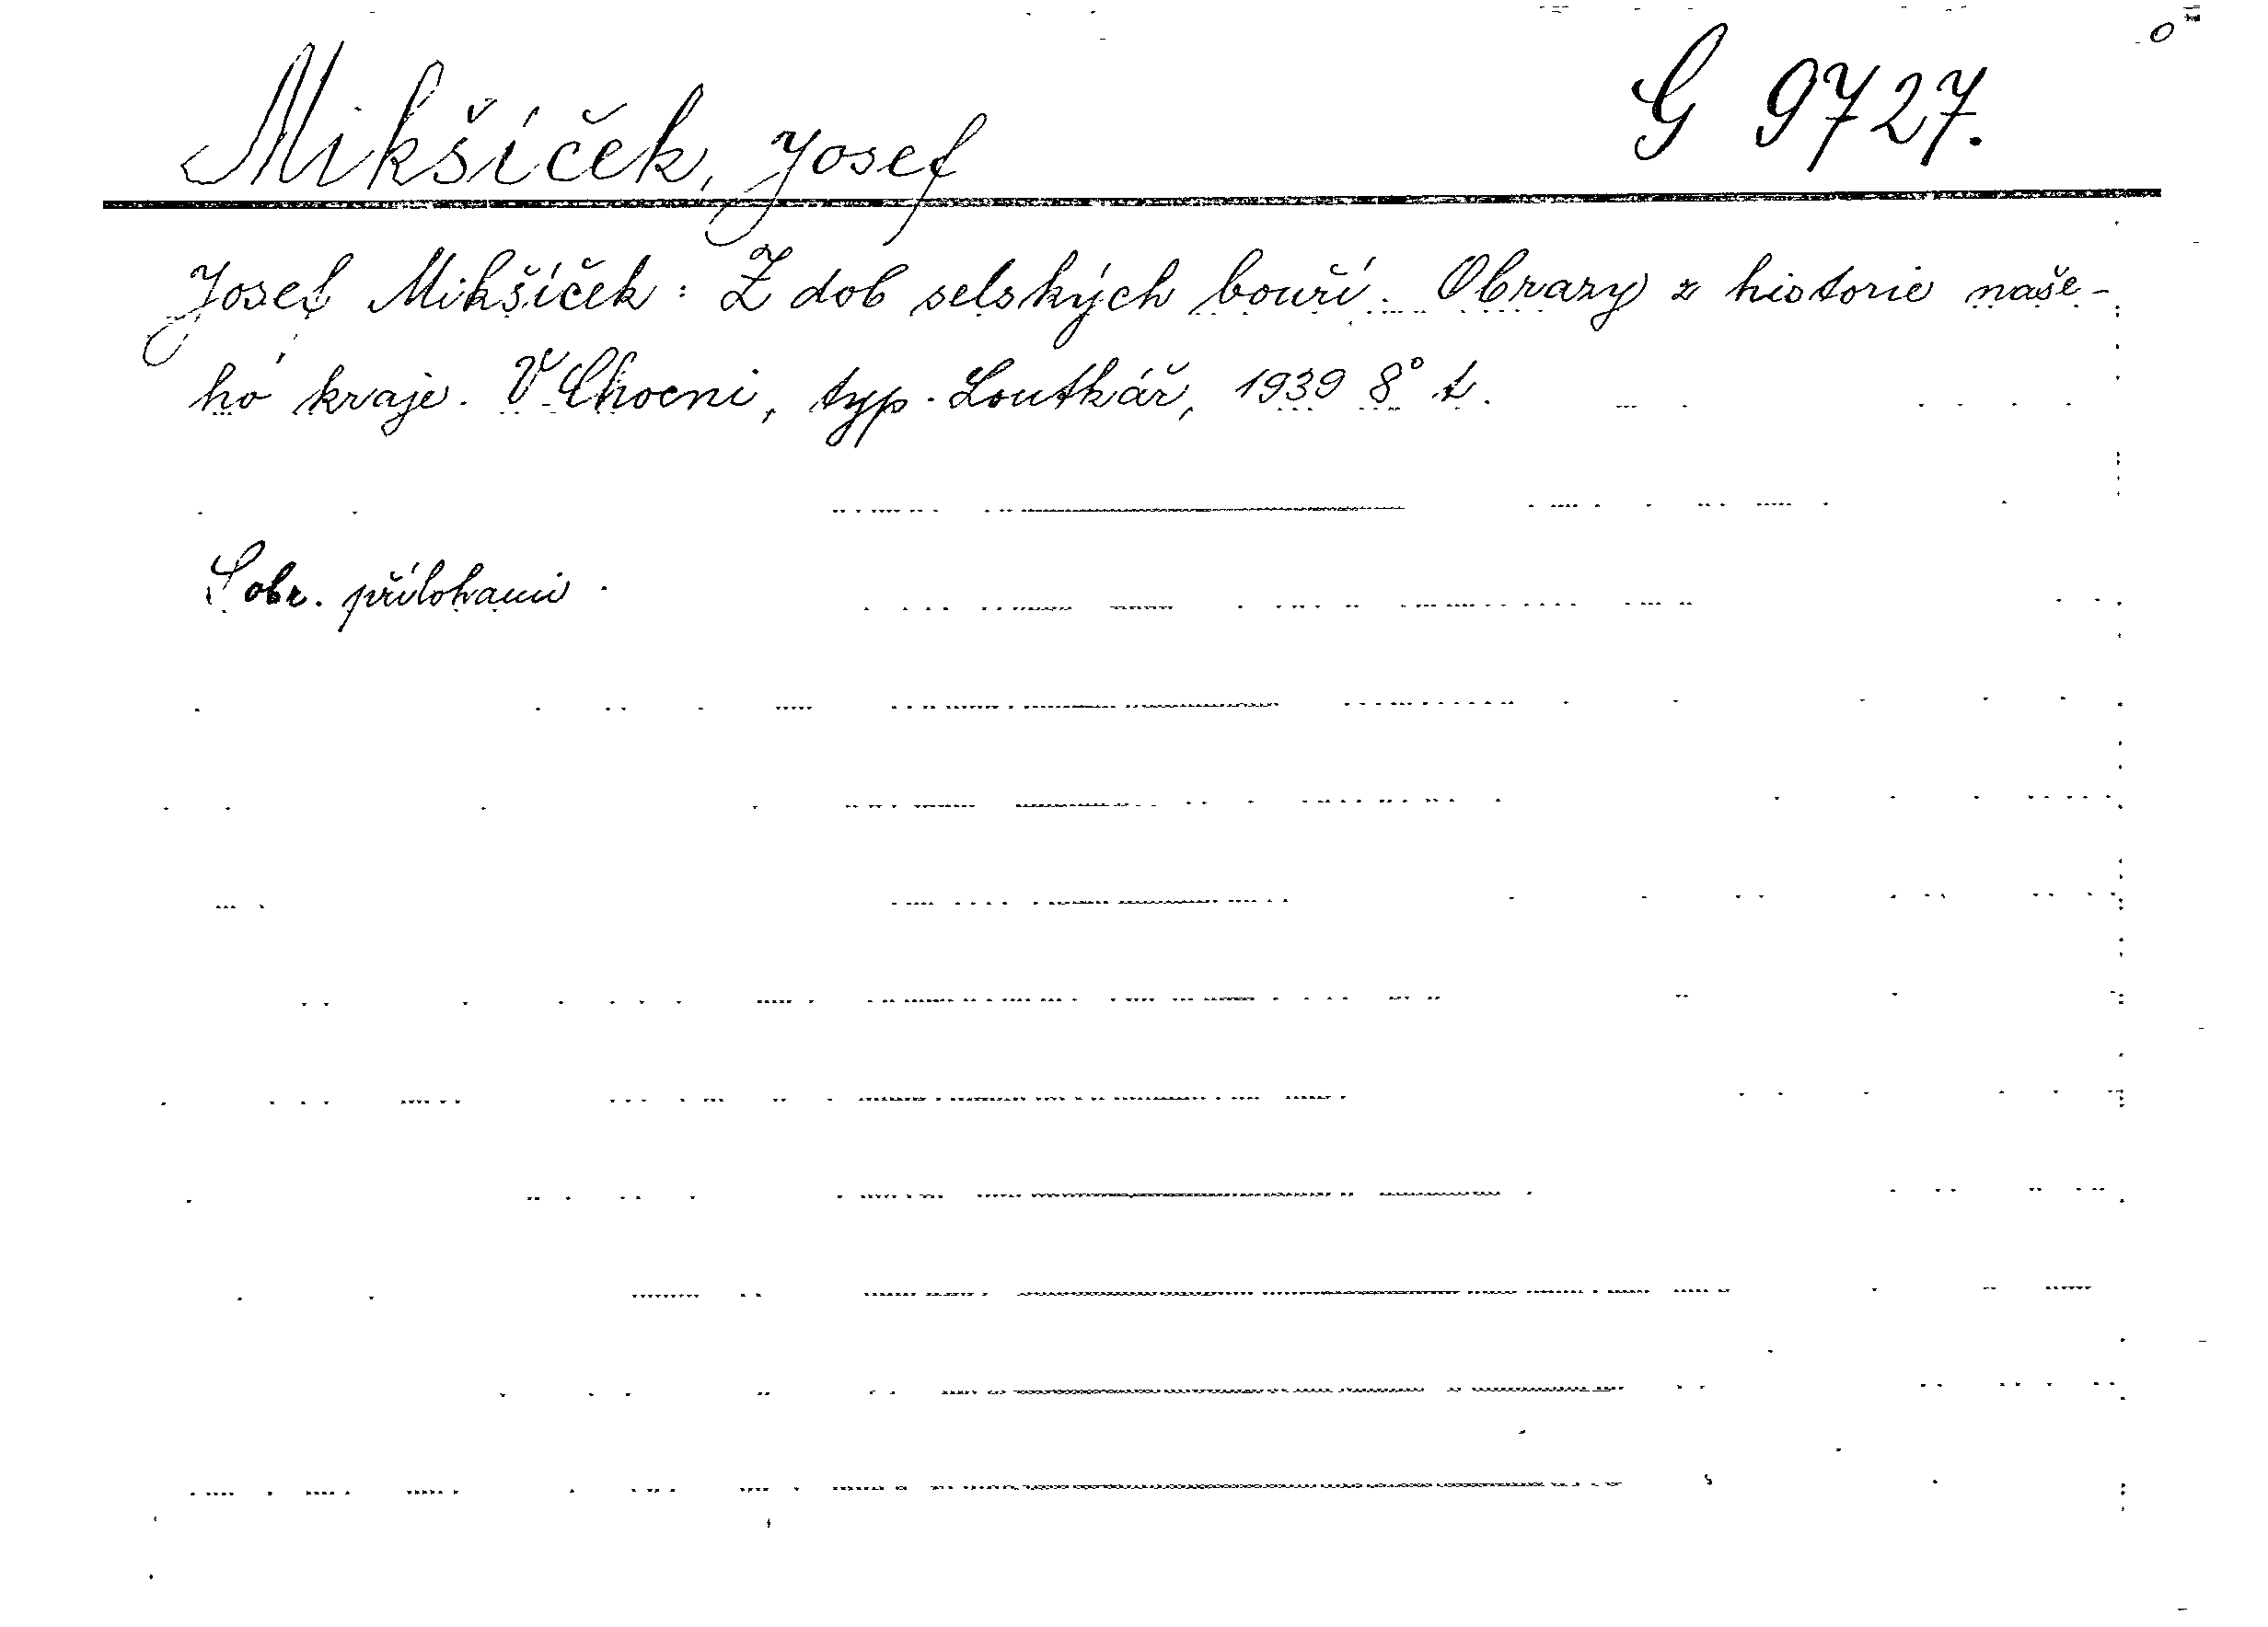 Mikšíček, Josef G 9727.
Josef Mikšíček: Z dob selských bouří. Obrazy z historie naše-
ho kraje. V Chocni, typ. Loutkář, 1939 8° t.
S obr. přílohami.